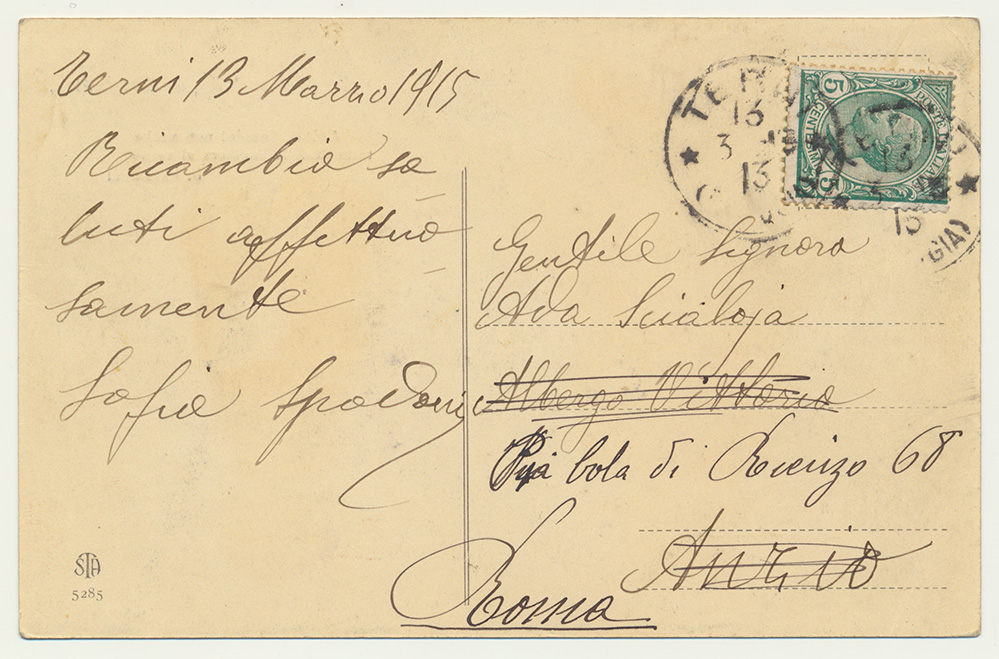 Terni 13 Marzo 1915
Ricambio sa
luti affettuo
samente
Sofia Spadoni
STA
5285
TERNI
13
3
13
5
5
POSTE ITALIANE
13
3
13
GIA)
Gentile Signora
Ada Scialoja
Albergo Vittoria
Via Cola di Rienzo 68
Anzio
Roma